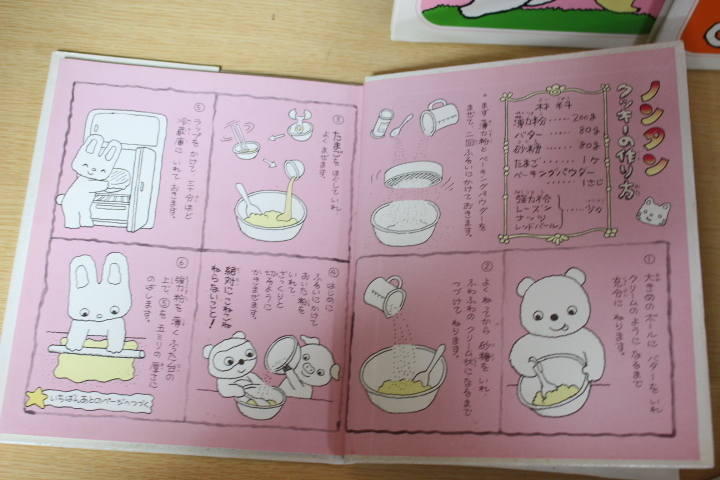 ノンタン
クッキーの作り方
材料
薄力粉……200g
バター……80g
砂糖……80g
たまご……1ケ
ベーキングパウダー
……1さじ
強力粉
レーズン
ナッツ
レッドパール
少々
*まず薄力粉とベーキングパウダーを
まぜて、二回ふるいにかけておきます。
①大きめのボールにバターをいれ
クリームのようになるまで
充分にねります。
②よくねってから砂糖をいれ
ふわふわのクリーム状になるまで
つづけてねります。
③たまごをほぐしていれ
よくまぜます。
④はじめに
ふるいにかけて
おいた粉を
いれて
ざっくりと
切るように
かきまぜます。
絶対にこねこね
ねらないこと!
⑤ラップをかけて三十分ほど
冷蔵庫にいれておきます。
⑥強力粉を薄くふった台の
上で⑤を五ミリの厚さに
のばします。
いちばんあとのページへつづく